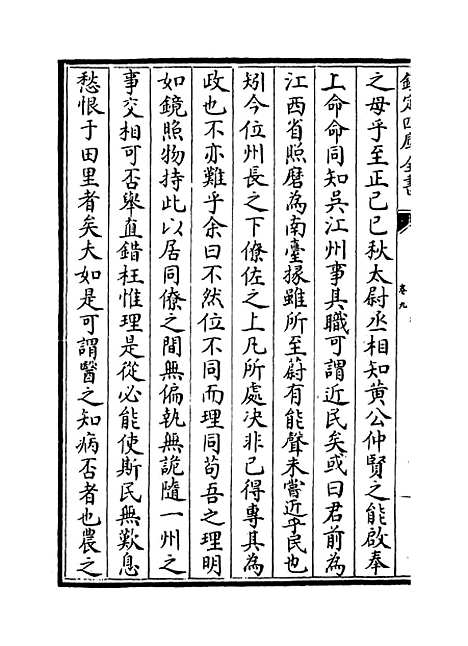 欽定四庫全書
卷九
之母乎至正己巳秋太尉丞相知黄公仲賢之能啟奉
上命命同知吳江州事其職可謂近民矣或曰君前為
江西省照磨為南臺掾雖所至蔚有能聲未嘗近乎民也
矧今位州長之下僚佐之上凡所處决非已得專其為
政也不亦難乎余曰不然位不同而理同苟吾之理明
如鏡照物持此以居同僚之間無偏執無詭隨一州之
事交相可否舉直錯枉惟理是從必能使斯民無歎息
愁恨于田里者矣夫如是可謂醫之知病否者也農之